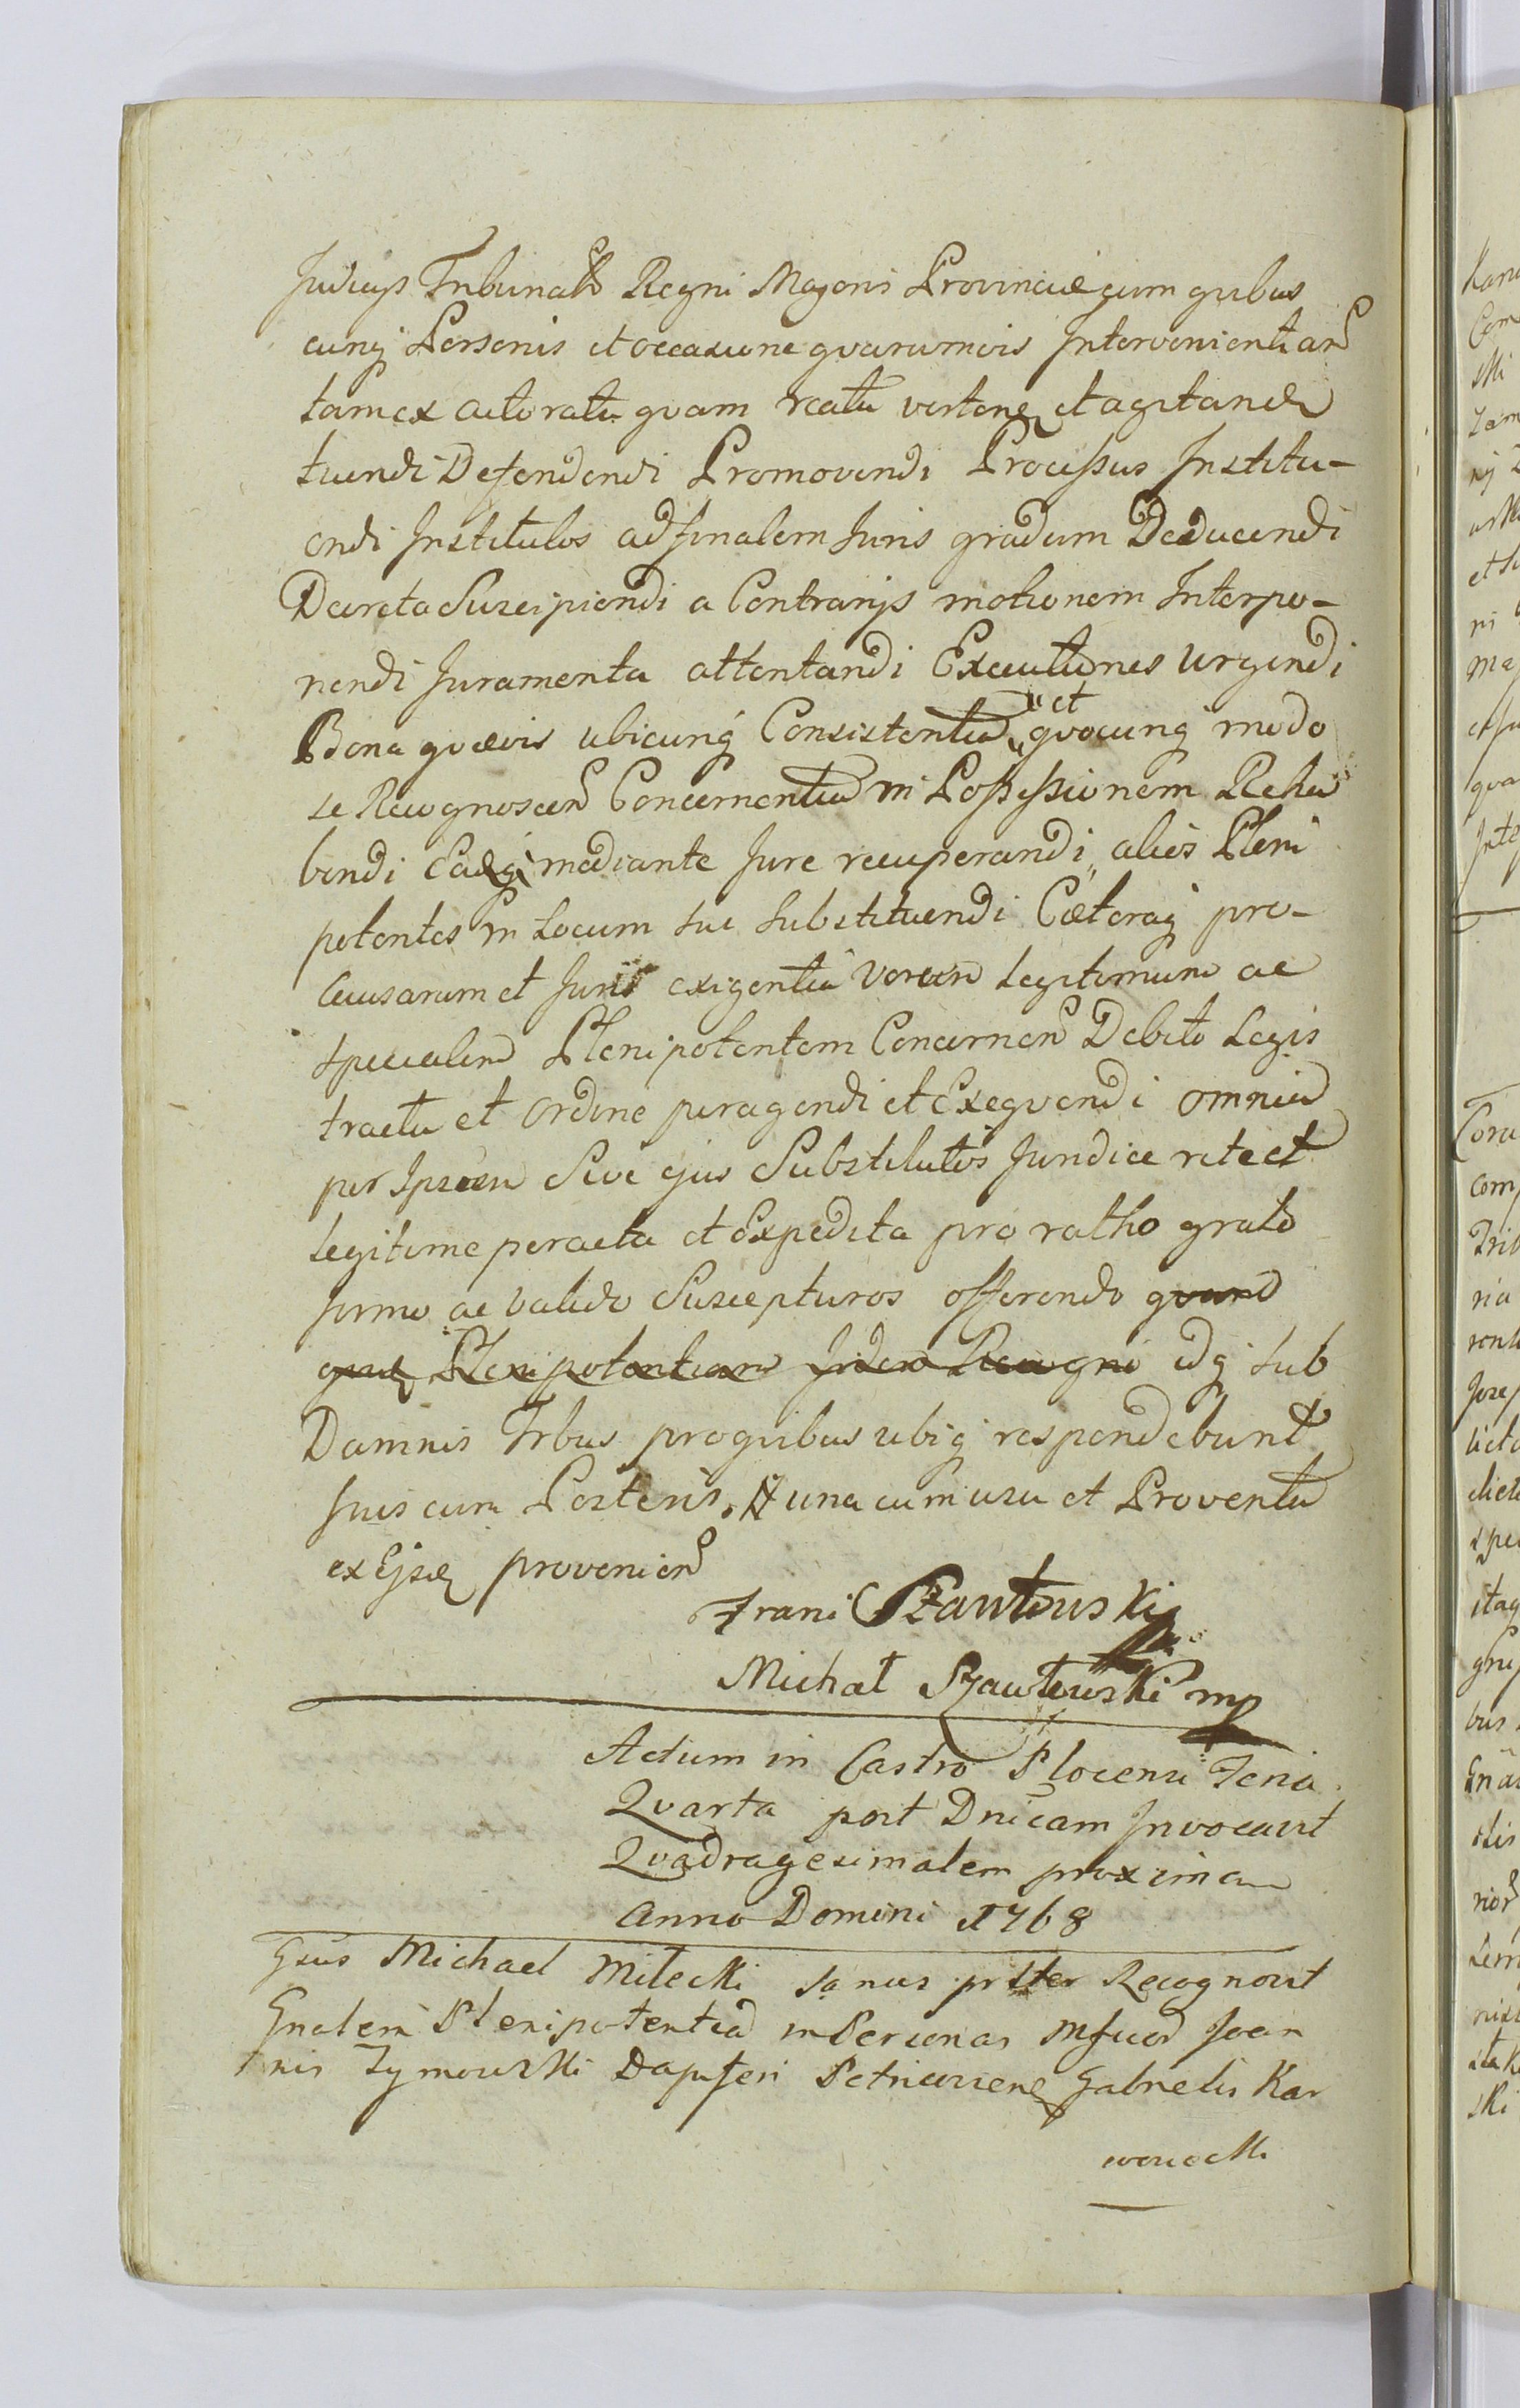 Judicijs Tribunalib Regni Majoris Provinciæ cum quibus
cunq Personis et occasione quarumvis Intervenientiarū
tam ex actoratu quam reatu verten et agitand
tuendi Defendendi Promovendi Processus Institu-
endi Institutos ad finalem Juris gradum Deducendi
Decreta Suscipiendi a Contrarijs motionem Interpo-
nendi Juramenta attentandi Executiones Urgendi
Bona quævis ubicunq Consistentia et quocunq modo
se Recognoscen Concernentia in Possessionem Reha
bendi Eaq mediante Jure recuperandi alios Pleni
potentes in Locum sui Substituendi Cæteraq pro
Causarum et Juris exigentia verum Legitimum ac
specialem Plenipotentem Concernen Debito Legis
tractu et Ordine peragendi et Exequendi omnia
per Ipsum Sive ejus Substitutos Juridice rite et
legitime peracta et Expedita pro ratho grato
firmo ac valido Suscepturos offerendo quam
quid Plenipotentiam Iidem Recogni idq sub
Damnis Trbus pro quibus ubiq respondebunt
suis cum Posteris. una cum usu et Proventu
ex Ejsd provenien
Frani Szawłowski
Michał Szawłowski mp
Actum in Castro Płocensi Feria
Qvarta post Dnicam Invocavit
Qvadragesimalem proxima
Anno Domini 1768
Gsus Michael Miłecki sanus prtter Recognovit
Gnalem Plenipotentia in Personas Mficor Joan
nis Zymowski Dapiferi Petricovien Gabrielis Kar
wosiecki
Kara
Com
ski
et
ni
Inte
Cora
com
Trib
ria
Jose
dicto
spe
itaq
bus
ski